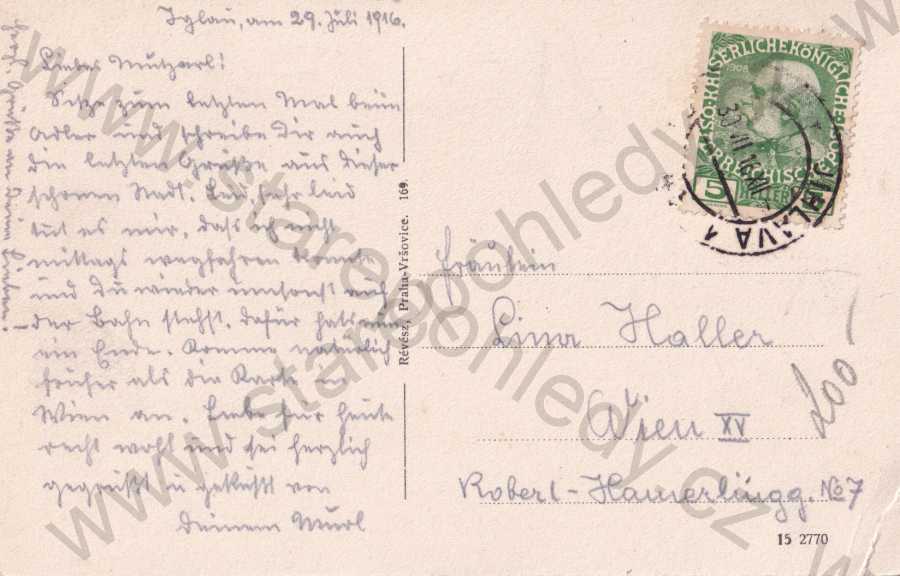 Iglau, am 29. Juli 1916.
Liebes Mutzerl!
Sitze zum letzten Mal beim
Adler und schreibe Dir auch
die letzten Grüße aus dieser
schönen Stadt. Sehr leid
tut es mir, daß ich nicht
mittags wegfahren konnte
und Du wieder umsonst auf
der Bahn stehst, dafür hats nun
ein Ende. Komme natürlich
früher als die Karte in
Wien an. Lebe für heute
recht wohl und sei herzlich
gegrüßt u geküßt von
Deinem Murl
Révész, Praha-Vršovice. 169.
KAISERLICHE KÖNIGLICHE
ÖSTERREICHISCHE POST
1908
5
HELLER
30 VII 16
JIHLAVA 1
Fräulein
Lina Haller
Wien XV
Robert-Hamerlingg. No 7
200
15 2770
www.starepohledy.cz